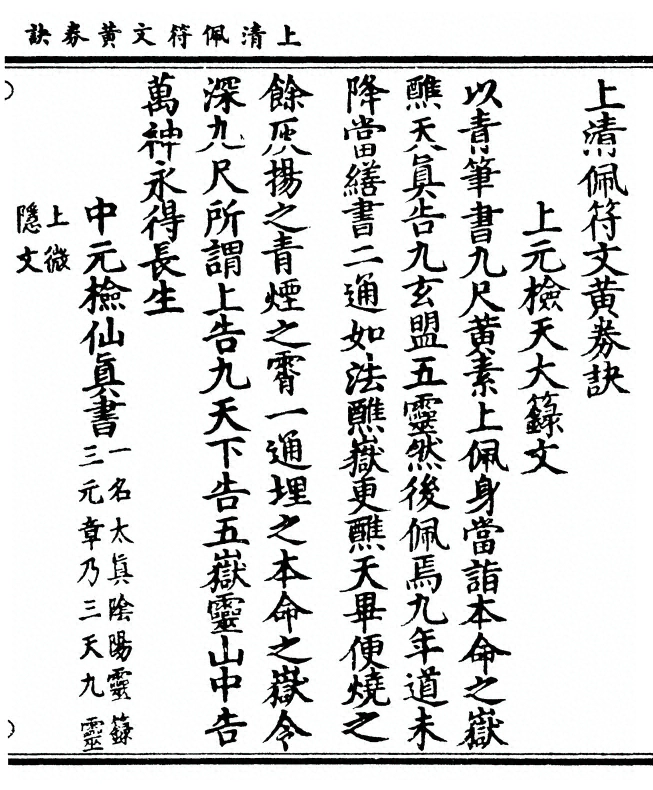 上清佩符文黃券訣
上清佩符文黃券訣
上元檢天大籙文
以青筆書九尺黃素上佩身當詣本命之嶽
醮天眞告九玄盟五靈然後佩焉九年道未
降當繕書二通如法醮嶽更醮天畢便燒之
餘灰揚之青煙之霄一通埋之本命之嶽令
深九尺所謂上告九天下告五嶽靈山中告
萬神永得長生
中元檢仙眞書一名太眞陰陽靈籙
三元章乃三天九靈
上微
隱文